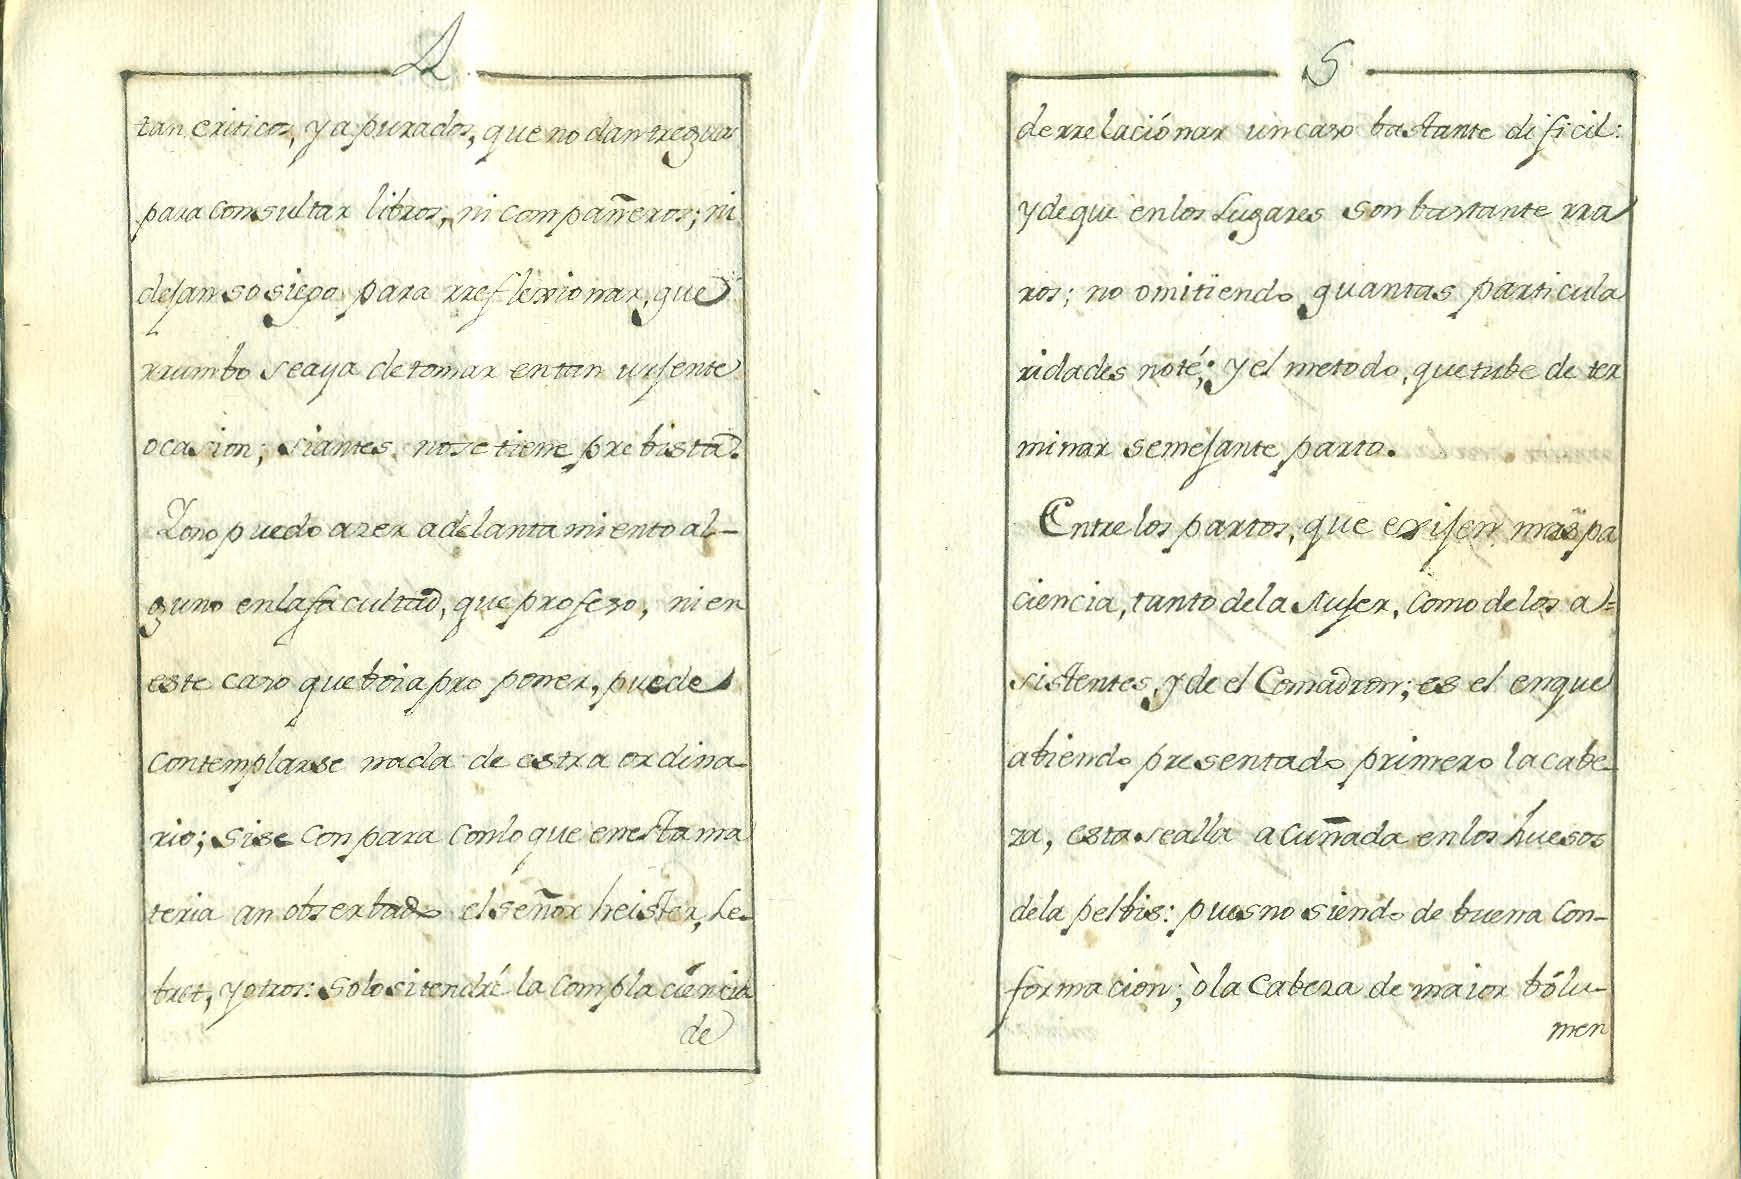 4
tan criticos, y apurados, que no dan treguas
para consultar libros, ni compañeros; ni
dejan sosiego para rreflexionar, que
rrumbo se aya de tomar en tan urjente
ocasion; si antes no se tiene prebista.
Yo no puedo azer adelantamiento al-
guno en la facultad, que profeso, ni en
este caso que boi a proponer, puede
contemplarse nada de estraordina-
rio; si se conpara con lo que en esta ma
teria an obserbado el señor heister, Le-
bret, y otros: solo si tendré la complacencia
de
5
de rrelacionar un caso bastante dificil:
y de que en los Lugares son bastante rra
ros; no omitiendo quantas particula
ridades noté; y el metodo, que tube de ter
minar semejante parto.
Entre los partos, que exijen mas pa
ciencia, tanto de la Mujer, como de los a=
sistentes, y de el Comadron; es el en que
abiendo presentado primero la cabe-
za, esta se alla acuñada en los huesos
de la pelbis: pues no siendo de buena con-
formacion; ò la cabeza de maior bólu-
men